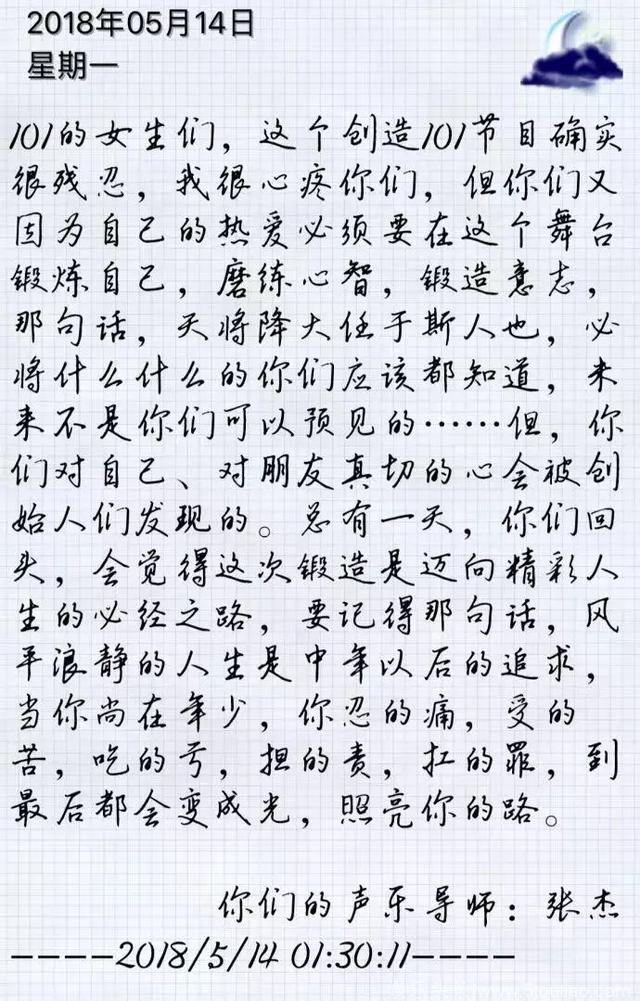 2018年05月14日
星期一
101的女生们，这个创造101节目确实
很残忍，我很心疼你们，但你们又
因为自己的热爱必须要在这个舞台
锻炼自己，磨练心智，锻造意志，
那句话，天将降大任于斯人也，必
将什么什么的你们应该都知道，未
来不是你们可以预见的······但，你
们对自己、对朋友真切的心会被创
始人们发现的。总有一天，你们回
头，会觉得这次锻造是迈向精彩人
生的必经之路，要记得那句话，风
平浪静的人生是中年以后的追求，
当你尚在年少，你忍的痛，受的
苦，吃的亏，担的责，扛的罪，到
最后都会变成光，照亮你的路。
你们的声乐导师：张杰
----2018/5/14 01:30:11----